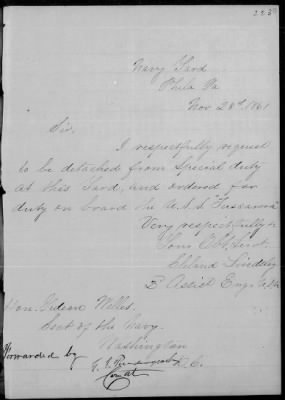 223
Navy Yard
Phila Pa
Nov 28th 1861
Sir,
I respectfully request
to be detached from Special duty
at this Yard, and ordered for
duty on board the U.S.S. "Tuscarora"
Very respectfully
Your Obt. Servt.
Cleland Lindsley
3d Asst Engr U.S.N.
Hon. Gideon Welles
Sect of the Navy
Washington
D.C.
Forwarded by
Comdt